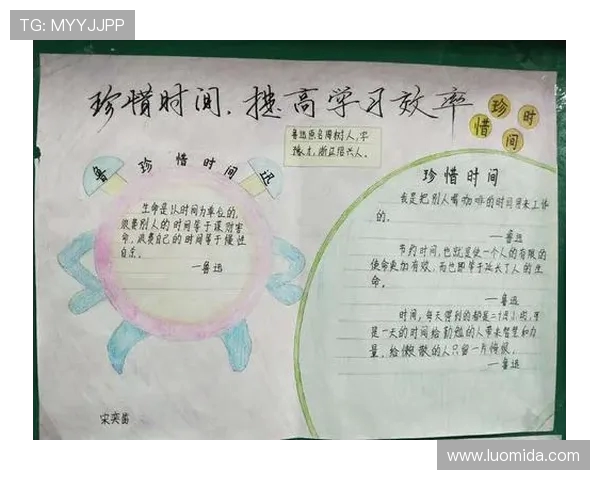 TG: MYYJJPP
珍惜时间.提高学习效率
珍惜时间
鲁迅原名周树人,字
豫才,浙江绍兴人。
鲁 珍惜时间 迅
生命是以时间为单位的,
浪费别人的时间等于谋财害
命,浪费自己的时间等于慢性
自杀。
—鲁迅
珍惜时间
我是把别人喝咖啡的时间用来工作
的。
—鲁迅
节约时间,也就是使一个人的有限的
使命更加有效,而也即等于延长了人的生
命。
—鲁迅
时间,每天得到的都是二十四小时,可
是一天的时间给勤勉的人带来智慧和力
量,给懒散的人只留一片悔恨。
—鲁迅
宋奕苗
www.luomida.com